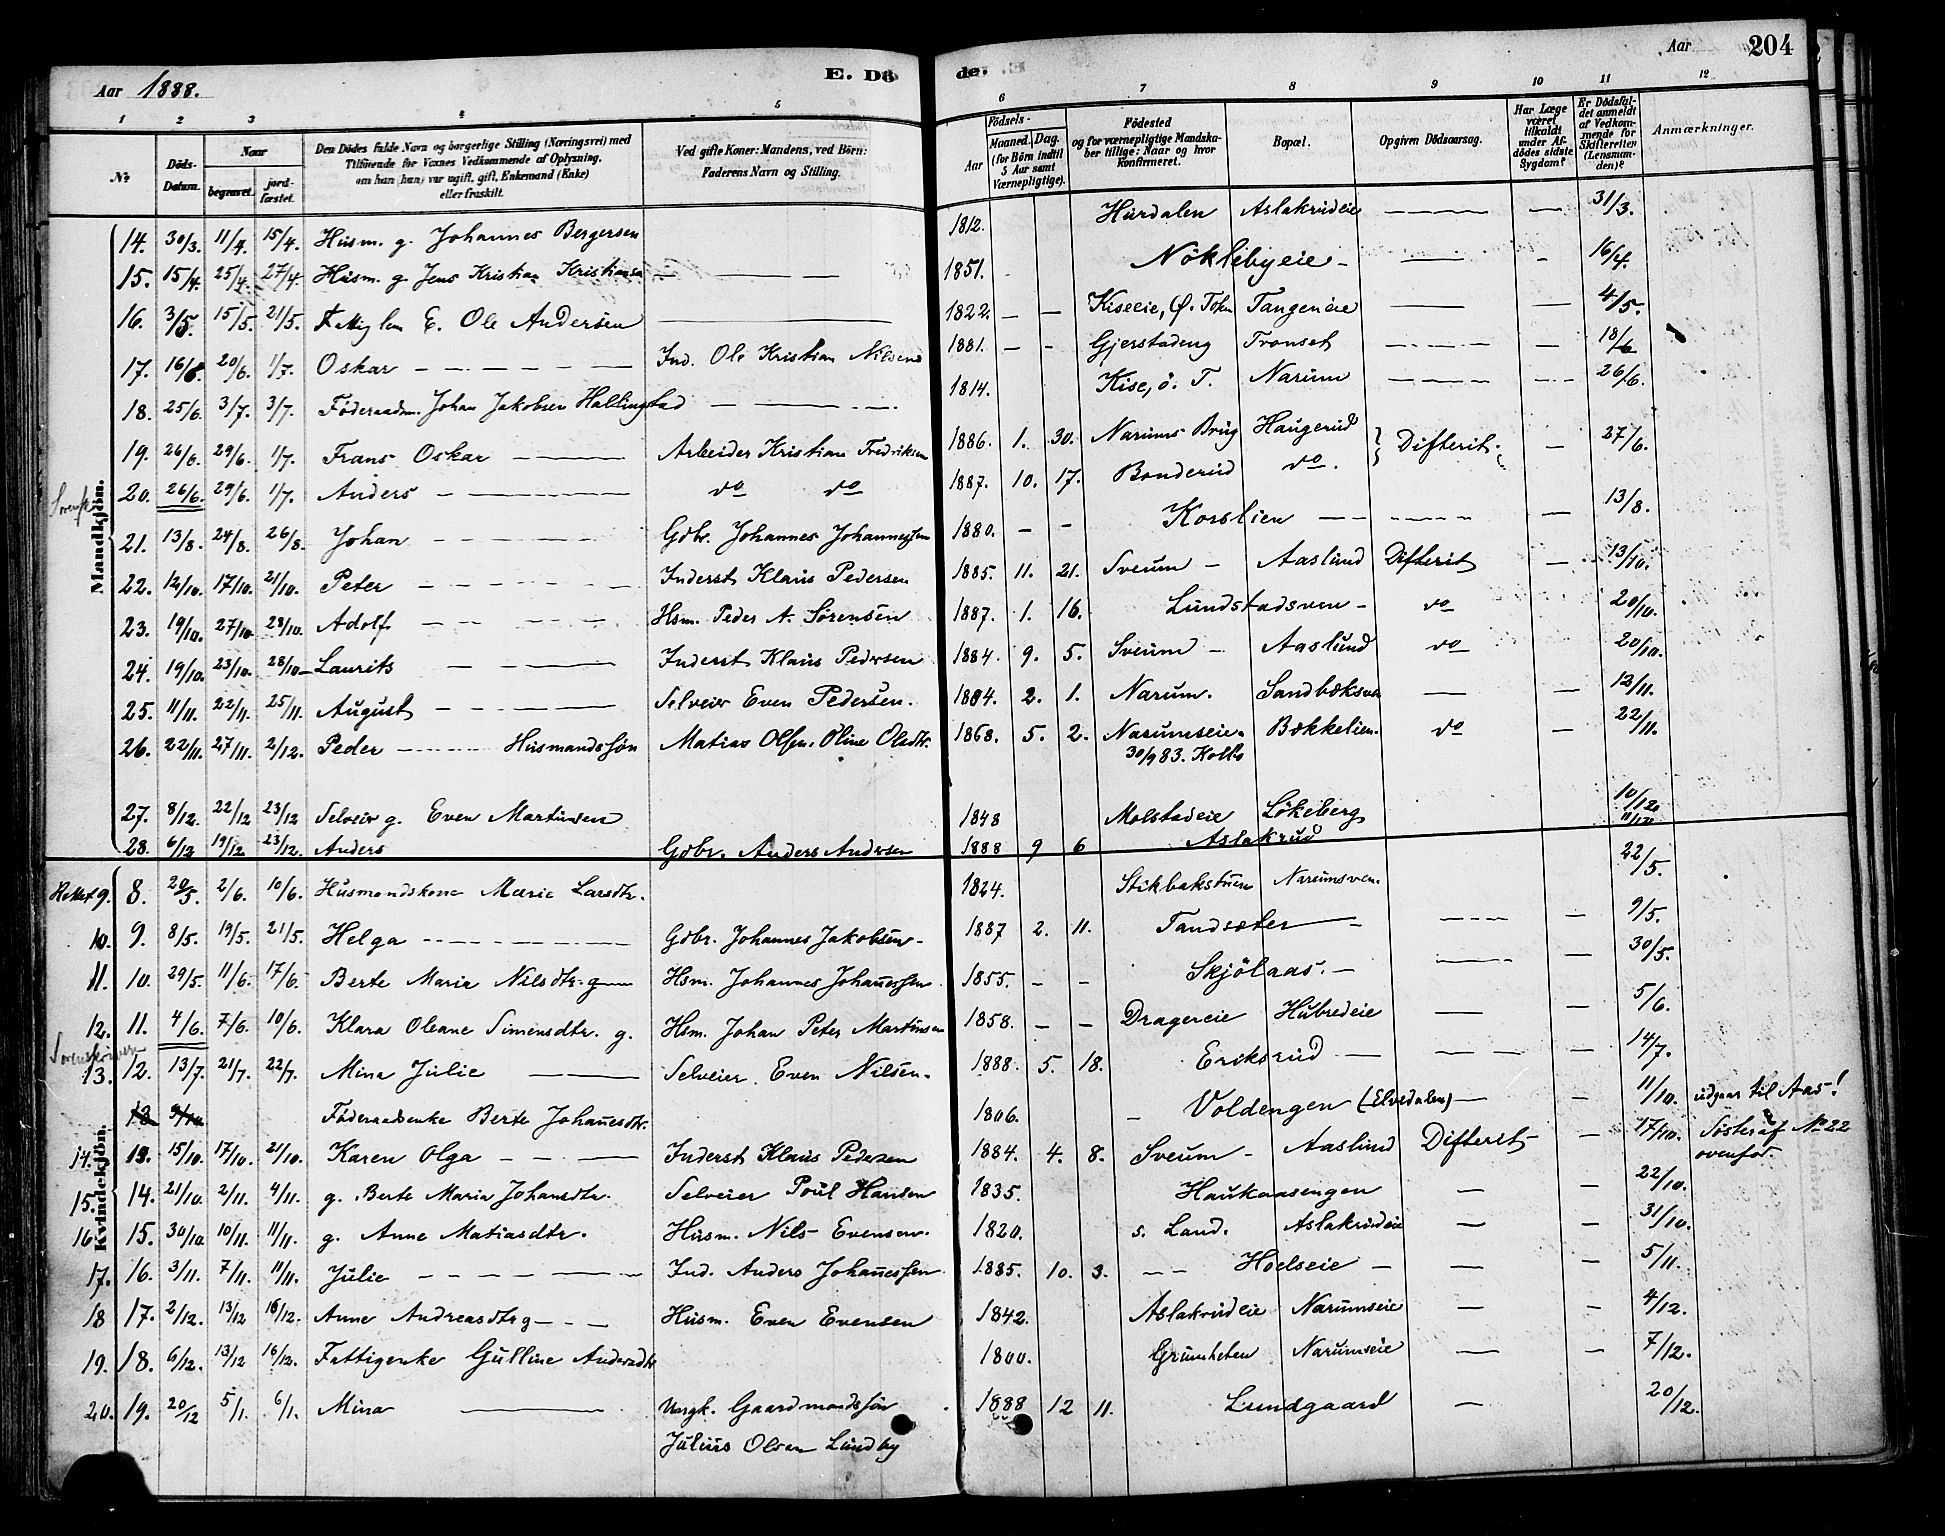 Aar 1888. E. Døde. Aar 204
1 2 3 4 5 6 7 8 9 10 11 12
No Døds-Datum. Naar begravet. jordfæstet. Den Dødes fulde Navn og borgerlige Stilling (Næringsvei) med Tilføiende for Voxnes Vedkommende af Oplysning, om han (hun) var ugift, gift, Enkemand (Enke) eller fraskilt. Ved gifte Koner: Mandens, ved Børn: Faderens Navn og Stilling. Fødsels- Aar Maaned. Dag. (for Børn indtil 5 Aar samt Værnepligtige). Fødested og for værnepligtige Mandskaber tillige: Naar og hvor konfirmeret. Bopæl. Opgiven Dødsaarsag. Har Læge været tilkaldt under Afdødes sidste Sygdom? Er Dødsfaldet anmeldt af Vedkommende for Skifteretten (Lensmanden)? Anmærkninger.
Mandkjøn.
14. 30/3. 11/4. 15/4. Husm. g. Johannes Bergersen 1812. Hurdalen Aslakrudeie — — 31/3.
15. 15/4. 25/4. 27/4. Husm. g. Jens Kristian Kristiansen — 1851. Nöklebyeie — — 16/4.
16. 3/5. 15/5. 21/5. Fattiglem E. Ole Andersen — 1822. — — Kiseeie, Ø. Toten Tangeneie — — 4/5.
17. 16/6. 20/6. 1/7. Oskar — Ind. Ole Kristian Nilsen 1881. — — Gjerstadeng Tronset — — 18/6
18. 25/6. 3/7. 3/7. Føderaadsm. Johan Jakobsen Hallingstad — 1814. Kise, ö. T. Narum — — 26/6.
19. 26/6. 29/6. 1/7. Frans Oskar — Arbeider Kristian Fredriksen 1886. 1. 30. Narums Brug Haugerud Difterit. — 27/6.
20. 26/6. 29/6. 1/7. Anders — do do 1887. 10. 17. Bonderud do.
21. 13/8. 24/8. 26/8. Johan — Gdbr. Johannes Johannessen 1880. — — Korslien — — — 13/8.
22. 12/10. 17/10. 21/10. Peter — Inderst Klaus Pedersen 1885. 11. 21. Sveum — Aaslund Difterit — 13/10.
23. 19/10. 27/10. 28/10. Adolf — Hsm. Peder A. Sørensen 1887. 1. 16. Lundstadsven — do — 20/10.
24. 19/10. 23/10. 28/10 — Laurits — Inderst Klaus Pedersen 1884. 9. 5. Sveum — Aaslund do — 20/10.
25. 11/11. 22/11. 25/11. August — Selveier Even Pedersen. 1884. 2. 1. Narum. Sandbæksven — — 12/11.
26. 22/11. 27/11. 2/12. Peder — Husmandssøn Matias Olsen. Oline Olsdtr. 1868. 5. 2. Narumseie. Bækkelien. do — 22/11.
30/9 83. Kolbo
27. 8/12. 22/12 23/12 Selveier g. Even Martinsen 1848 Molstadeie Lökeberg 10/12
28. 6/12 19/12 23/12. Anders Gdbr. Anders Andersen 1888 9 6 Aslakrud 11/12
Kvindekjøn.
Rettet 9. 8. 20/5. 2/6. 10/6. Husmandskone Marie Larsdtr. 1824. Stikbakstuen Narumsven. 22/5.
10. 9. 8/5. 19/5. 21/5. Helga — Gdbr. Johannes Jakobsen — 1887 2. 11. Tandsæter — — — 9/5.
11. 10. 29/5. 11/6. 17/6. Berte Maria Nilsdtr. g — Hsm. Johannes Johannessen. 1855. — — Skjölaas. — — — 30/5.
12. 11. 4/6. 7/6. 10/6. Klara Oleane Simensdtr. g. Hsm. Johan Peter Martinsen 1858. — — Dragereie Hubredeie — — 5/6.
13. 12. 13/7. 21/7. 22/7. Mina Julie — Selveier. Even Nilsen. 1888. 5. 18. Eriksrud — — — 14/7.
12 9/10 Føderaadsenke Berte Johannesdtr. 1806. — Voldengen (Elvedalen) — — 11/10. udgaar til Aas!
14. 13. 15/10. 17/10. 21/10. Karen Olga — Inderst Klaus Pedersen 1884. 4. 8. Sveum — Aaslund Difterit — — 17/10. Søster af No 22
ovenfor.
15. 14. 21/10. 2/11. 4/11. g. Berte Maria Johansdtr. Selveier Poul Hansen 1835. Haukaasengen — — 22/10.
16 15. 30/10 10/11. 11/11. g. Anne Matiasdtr. Husm. Nils Evensen. 1820. s. Land. Aslakrudeie — — 31/10.
17. 16. 3/11. 7/11. 11/11. Julie — Ind. Anders Johannessen 1885. 10. 3. — Hoelseie — — — 5/11.
18 17. 2/12. 13/12 16/12. Anne Andreasdtr g — Husm. Even Evensen 1842. Aslakrudeie Narumseie — — 4/12.
19. 18. 6/12. 13/12 16/12. Fattigenke Gulline Andersdtr 1800. Grümheten Narumseie — — 7/12.
20. 19. 20/12 5/1. 6/1. Mina — Ungk. Gaardmandssön 1888 12 11. Lundgaard — 20/12.
Julius Olsen Lundby